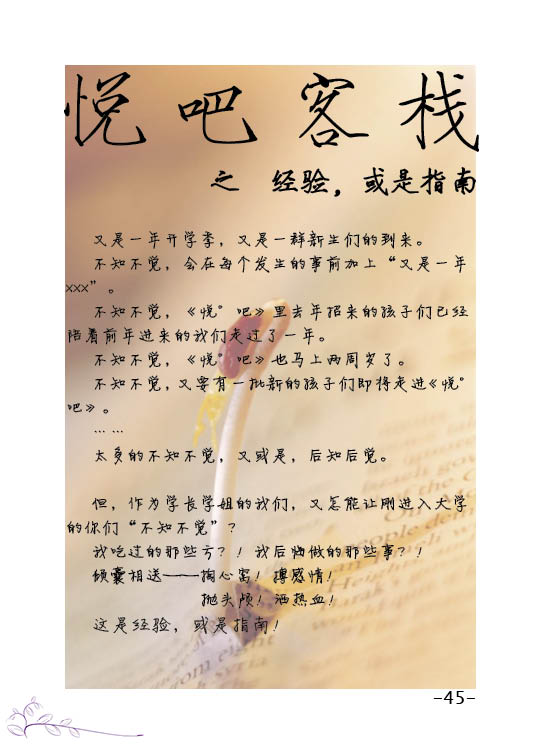 悦吧客栈
之 经验，或是指南
又是一年开学季，又是一群新生们的到来。
不知不觉，会在每个发生的事前加上“又是一年
xxx”。
不知不觉，《悦°吧》里去年招来的孩子们已经
陪着前年进来的我们走过了一年。
不知不觉，《悦°吧》也马上两周岁了。
不知不觉，又要有一批新的孩子们即将走进《悦°
吧》。
… …
太多的不知不觉，又或是，后知后觉。
但，作为学长学姐的我们，又怎能让刚进入大学
的你们“不知不觉”？
我吃过的那些亏？！我后悔做的那些事？！
倾囊相送——掏心窝！搏感情！
抛头颅！洒热血！
这是经验，或是指南！
-45-